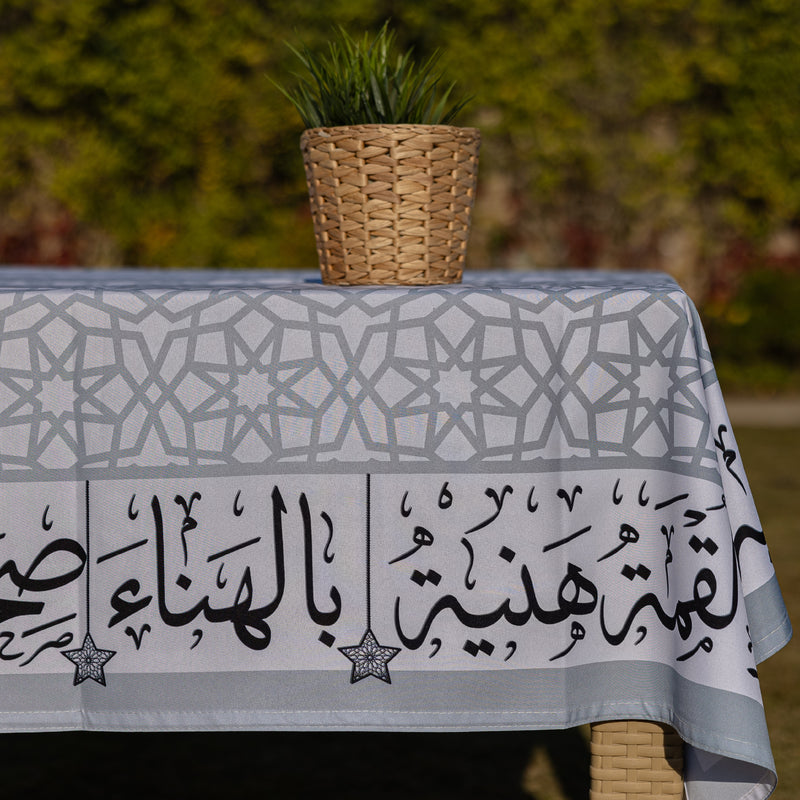 لقمة هنية بالهناء